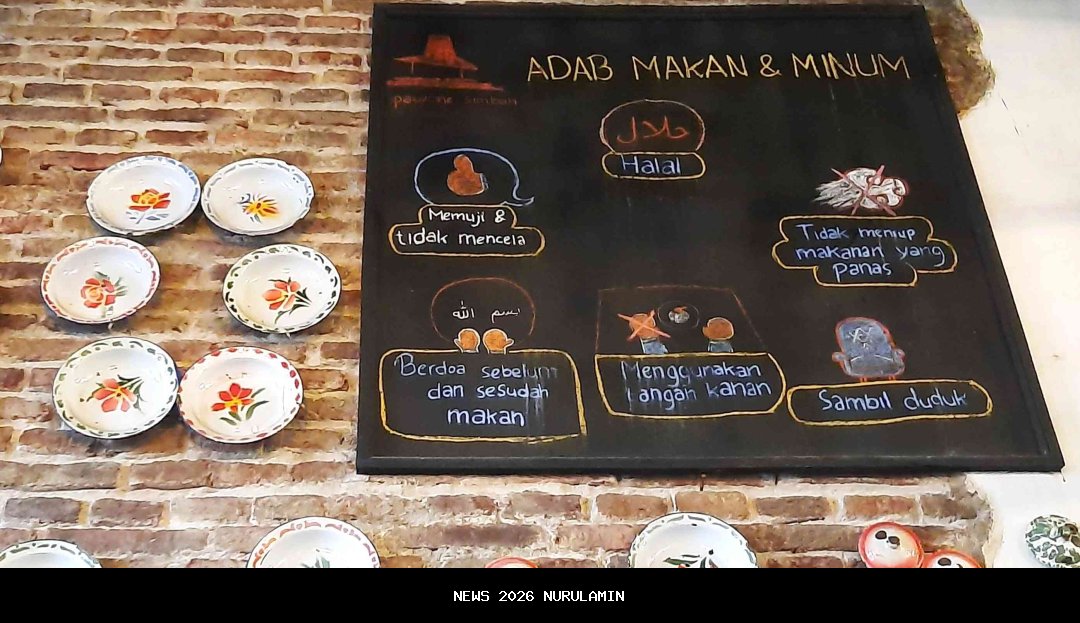 ADAB MAKAN & MINUM
حلال
Halal
Memuji &
tidak mencela
Tidak meniup
makanan yang
panas
بسم الله
Berdoa sebelum
dan sesudah
makan
Menggunakan
tangan kanan
Sambil duduk
NEWS 2026 NURULAMIN